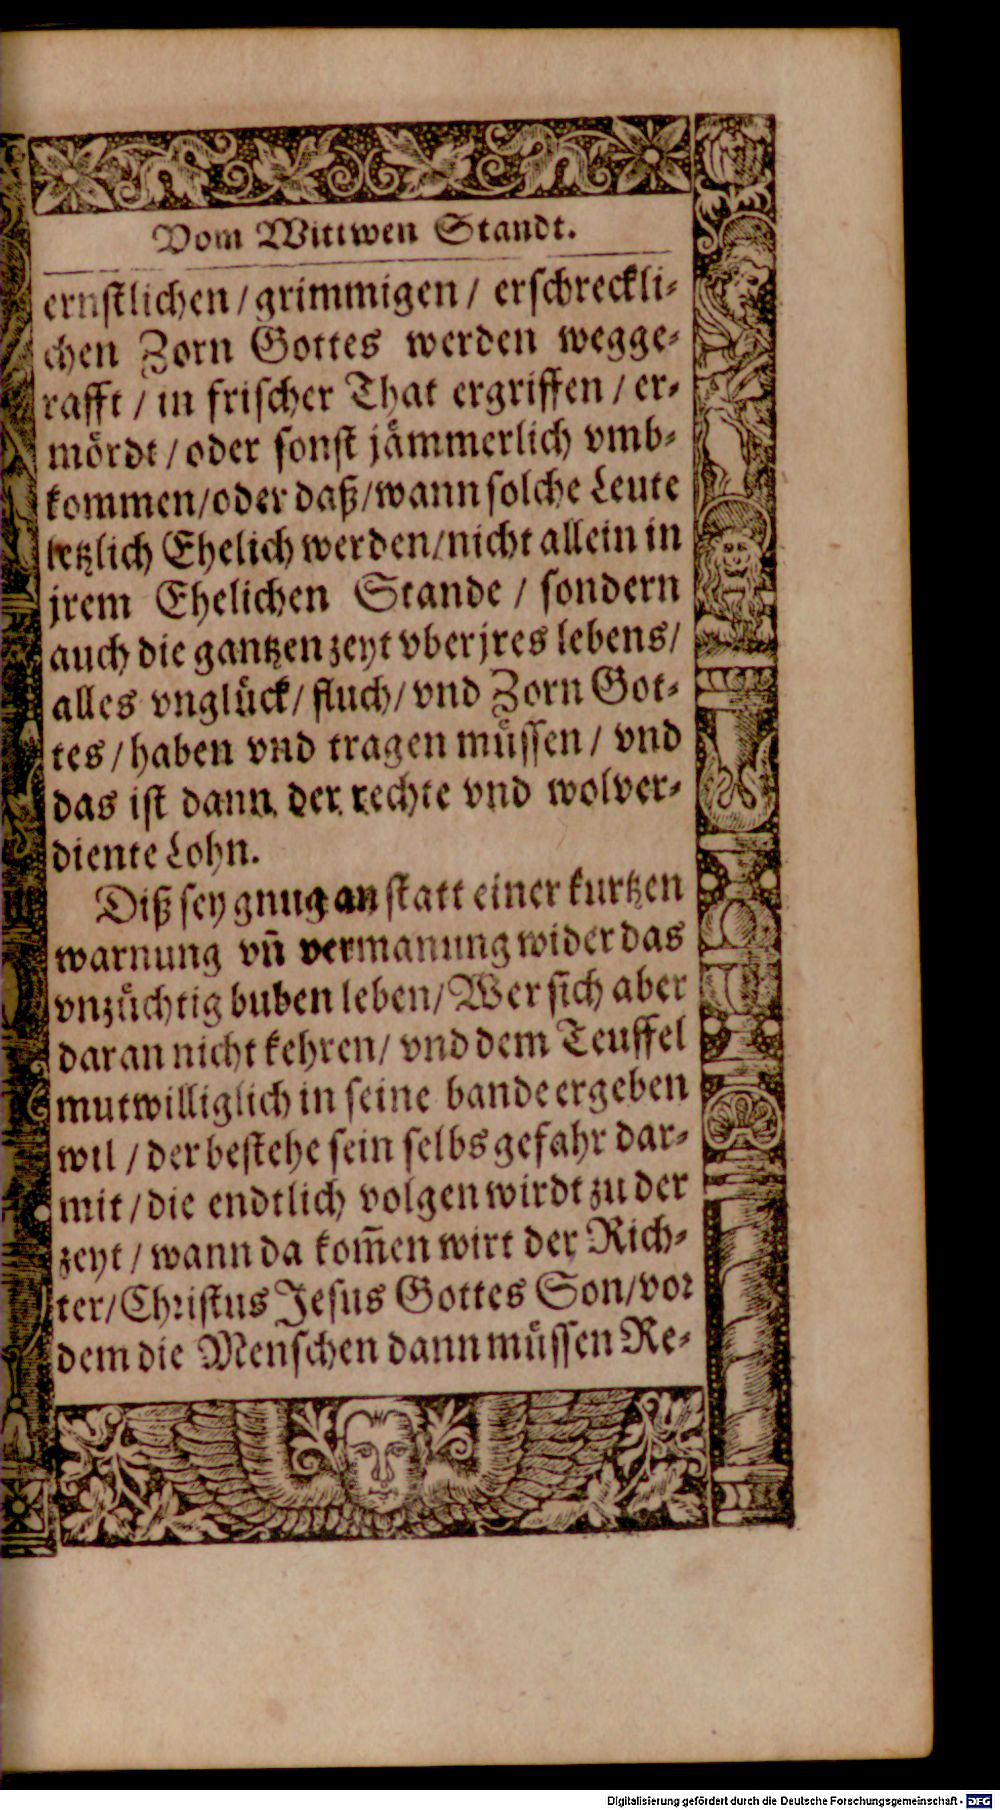 Vom Wittwen Standt.
ernstlichen / grimmigen / erschreckli⸗
chen Zorn Gottes werden wegge⸗
rafft / in frischer That ergriffen / er⸗
mördt / oder sonst jämmerlich vmb⸗
kommen/oder daß/wann solche Leute
letzlich Ehelich werden/nicht allein in
jrem Ehelichen Stande / sondern
auch die gantzen zeyt vber jres lebens/
alles vnglück/ fluch/ vnd Zorn Got⸗
tes / haben vnd tragen müssen / vnd
das ist dann der rechte vnd wolver⸗
diente Lohn.
Diß sey gnug an statt einer kurtzen
warnung vn̄ vermanung wider das
vnzüchtig buben leben/ Wer sich aber
daran nicht kehren/ vnd dem Teuffel
mutwilliglich in seine bande ergeben
wil / der bestehe sein selbs gefahr dar⸗
mit / die endtlich volgen wirdt zu der
zeyt / wann da kom̄en wirt der Rich⸗
ter/Christus Jesus Gottes Son/vor
dem die Menschen dann müssen Re⸗
Digitalisierung gefördert durch die Deutsche Forschungsgemeinschaft - DFG